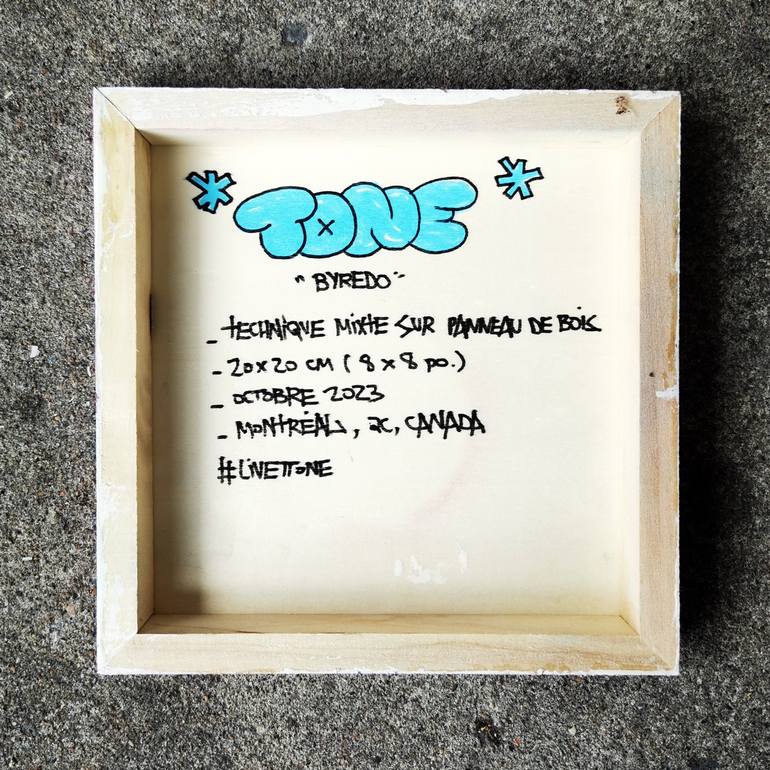 * TONE *
"BYREDO"
- TECHNIQUE MIXTE SUR PANNEAU DE BOIS
- 20x20 CM (8x8 po.)
- OCTOBRE 2023
- MONTRÉAL, QC, CANADA
#LIVETTONE